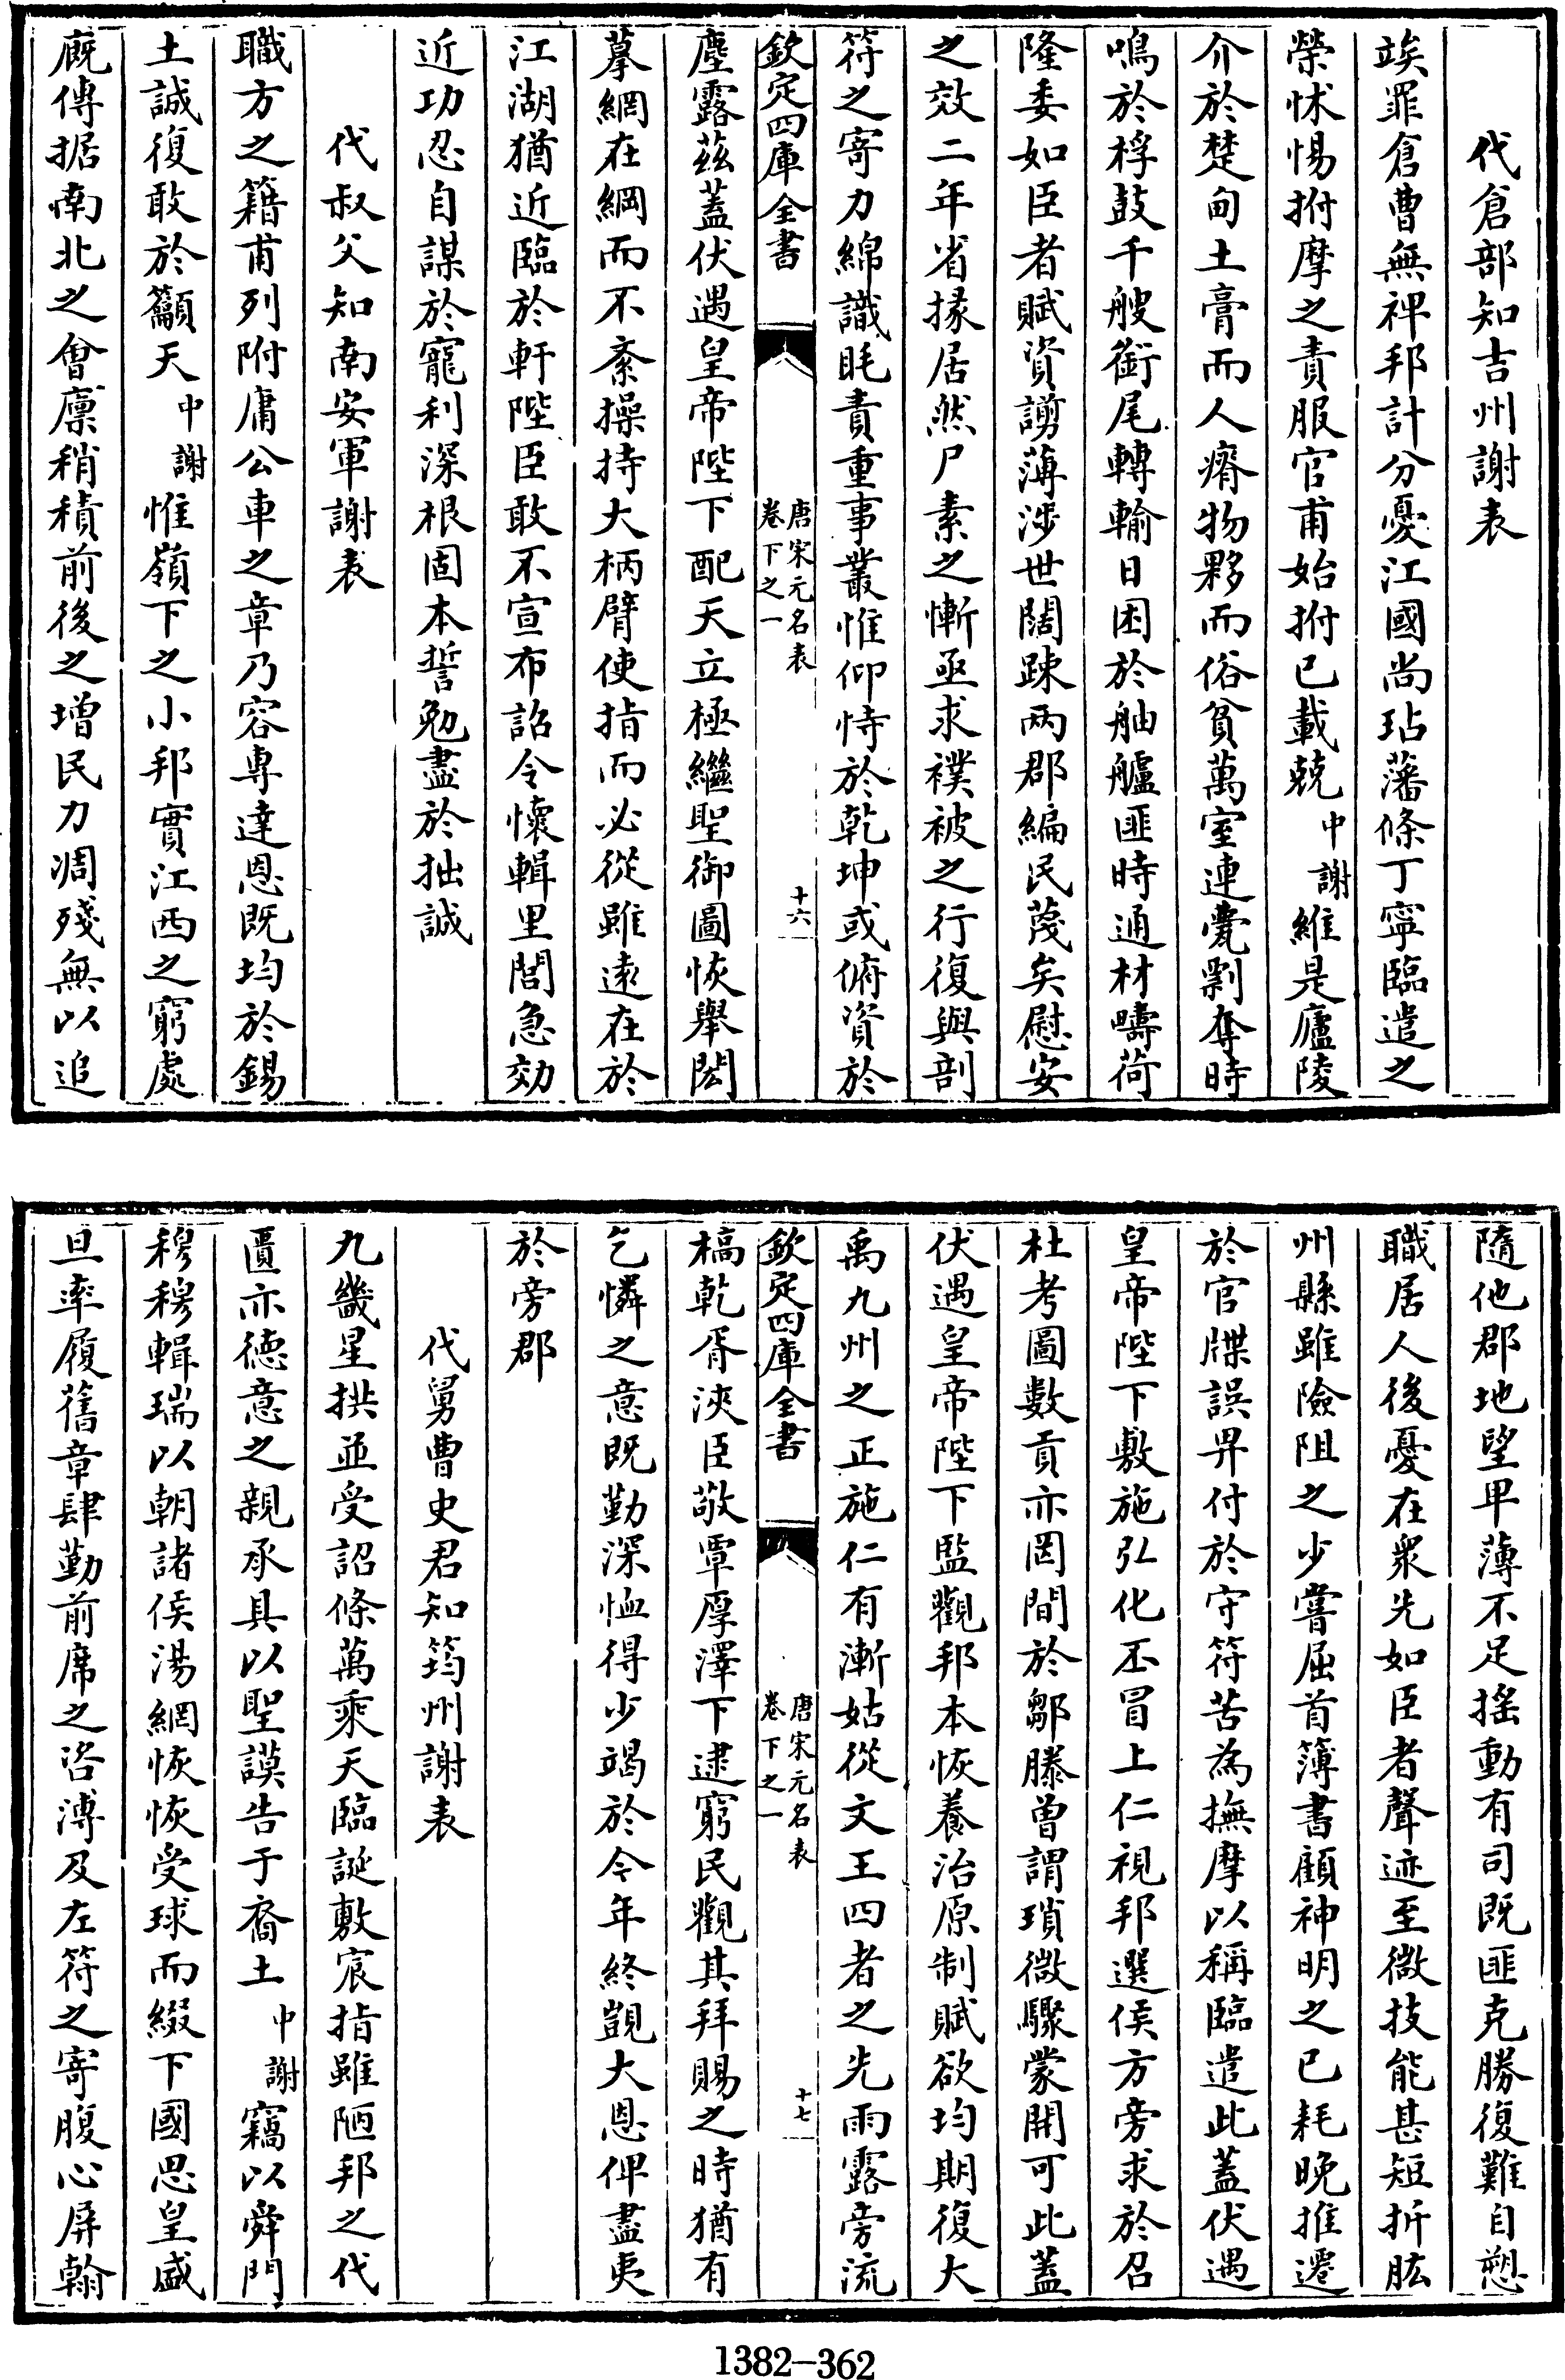 代倉部知吉州謝表
竢罪倉曹無禆邦計分憂江國尚玷藩條丁寧臨遣之
榮怵惕拊摩之責服官甫始拊已載兢中謝維是廬陵
介於楚甸土膏而人瘠物夥而俗貧萬室連甍剽奪時
鳴於桴鼓千艘銜尾轉輸日困於舳艫匪時通材疇荷
隆委如臣者賦資謭薄涉世闊踈兩郡編民蔑矣慰安
之效二年省掾居然尸素之慚亟求襆被之行復與剖
符之寄力綿識眊責重事叢惟仰恃於乾坤或俯資於
欽定四庫全書
唐宋元名表
卷下之一
十六
塵露茲蓋伏遇皇帝陛下配天立極繼聖御圖恢舉閎
摹網在綱而不紊操持大柄臂使指而必從雖遠在於
江湖猶近臨於軒陛臣敢不宣布詔令懷輯里閭急効
近功忍自謀於寵利深根固本誓勉盡於拙誠
代叔父知南安軍謝表
職方之籍甫列附庸公車之章乃容專達恩既均於錫
土誠復敢於籲天中謝惟嶺下之小邦實江西之窮處
廐傳据南北之會廪稍積前後之增民力凋殘無以追
隨他郡地望卑薄不足搖動有司既匪克勝復難自愬
職居人後憂在衆先如臣者聲迹至微技能甚短折肱
州縣雖險阻之少嘗屈首簿書顧神明之已耗晚推遷
於官牒誤畀付於守符苦為撫摩以稱臨遣此蓋伏遇
皇帝陛下敷施弘化丕冒上仁視邦選侯方旁求於召
杜考圖數貢亦罔間於鄒滕曾謂瑣微驟蒙開可此蓋
伏遇皇帝陛下監觀邦本恢養治原制賦欲均期復大
禹九州之正施仁有漸姑從文王四者之先雨露旁流
欽定四庫全書
唐宋元名表
卷下之一
十七
槁乾胥浹臣敬覃厚澤下逮窮民觀其拜賜之時猶有
乞憐之意既勤深恤得少竭於今年終覬大恩俾盡夷
於旁郡
代舅曹史君知筠州謝表
九畿星拱並受詔條萬乘天臨誕敷宸指雖陋邦之代
匱亦德意之親承具以聖謨告于裔土中謝竊以舜門
穆穆輯瑞以朝諸侯湯網恢恢受球而綴下國思皇盛
旦率履舊章肆勤前席之咨溥及左符之寄腹心屏翰
1382-362